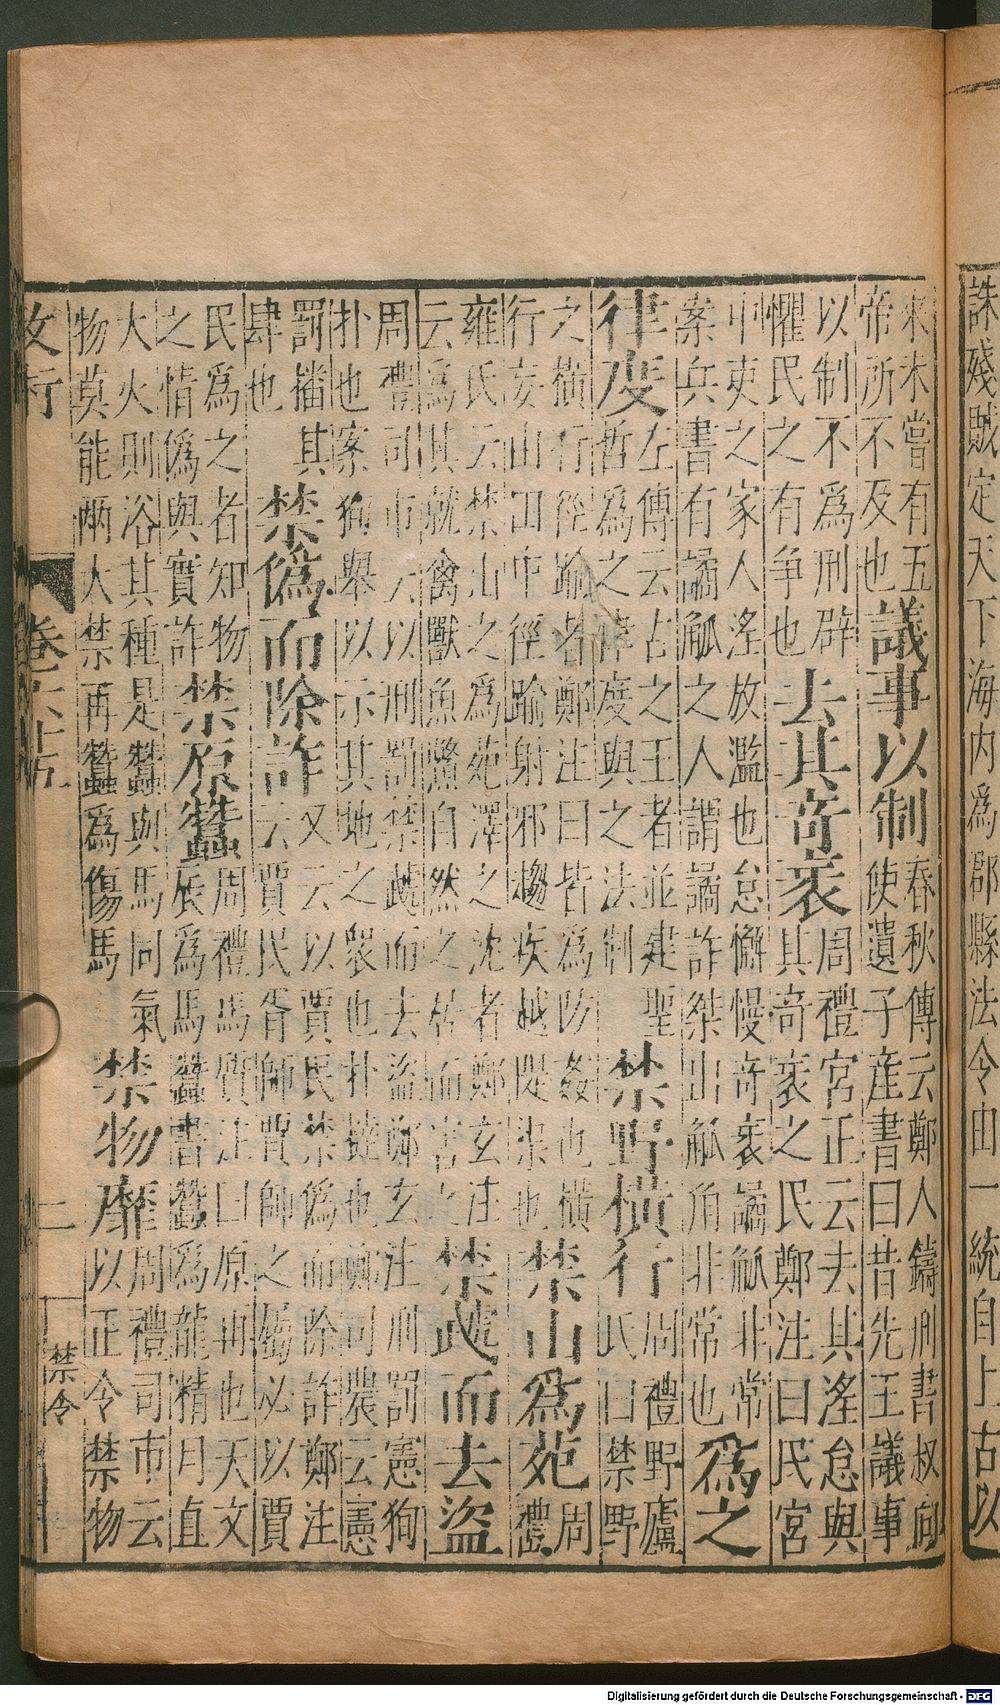 誅殘賊定天下海内爲郡縣法令由一統自上古以
來未嘗有五
帝所不及也
議事以制
春秋傳云鄭人鑄刑書叔向
使遺子産書曰昔先王議事
以制不爲刑辟
懼民之有爭也
去其奇衺
周禮宮正云去其滛怠與
其奇衺之民鄭注曰民宮
中吏之家人滛放濫也怠懈慢奇衺譎觚非常
案兵書有譎觚之人謂譎詐桀出觚角非常也
爲之
律度
左傳云古之王者並建聖
哲爲之律度與之法制
禁野橫行
周禮野廬
氏曰禁野
之橫行徑踰者鄭注曰皆爲防姦也橫
行妄由田中徑踰射邪趨疾越隄渠也
禁山爲苑
周
禮
雍氏云禁山之爲苑澤之沈者鄭玄注
云爲其就禽獸魚鱉自然之居而害之
禁虣而去盜
周禮司市云以刑罰禁虣而去盜鄭玄注刑罰憲狥
扑也案狥舉以示其地之衆也扑撻也鄭司農云憲
罰播其
肆也
禁僞而除詐
又云以賈民禁僞而除詐鄭注
云賈民胥師賈師之屬必以賈
民爲之者知物
之情僞與實詐
禁原蠶
周禮馬質注曰原再也天文
辰爲馬蠶書蠶爲龍精月直
大火則浴其種是蠶與馬同氣
物莫能兩大禁再蠶爲傷馬
禁物靡
周禮司市云
以正令禁物
卷六十五
二
禁令
Digitalisierung gefördert durch die Deutsche Forschungsgemeinschaft - DFG